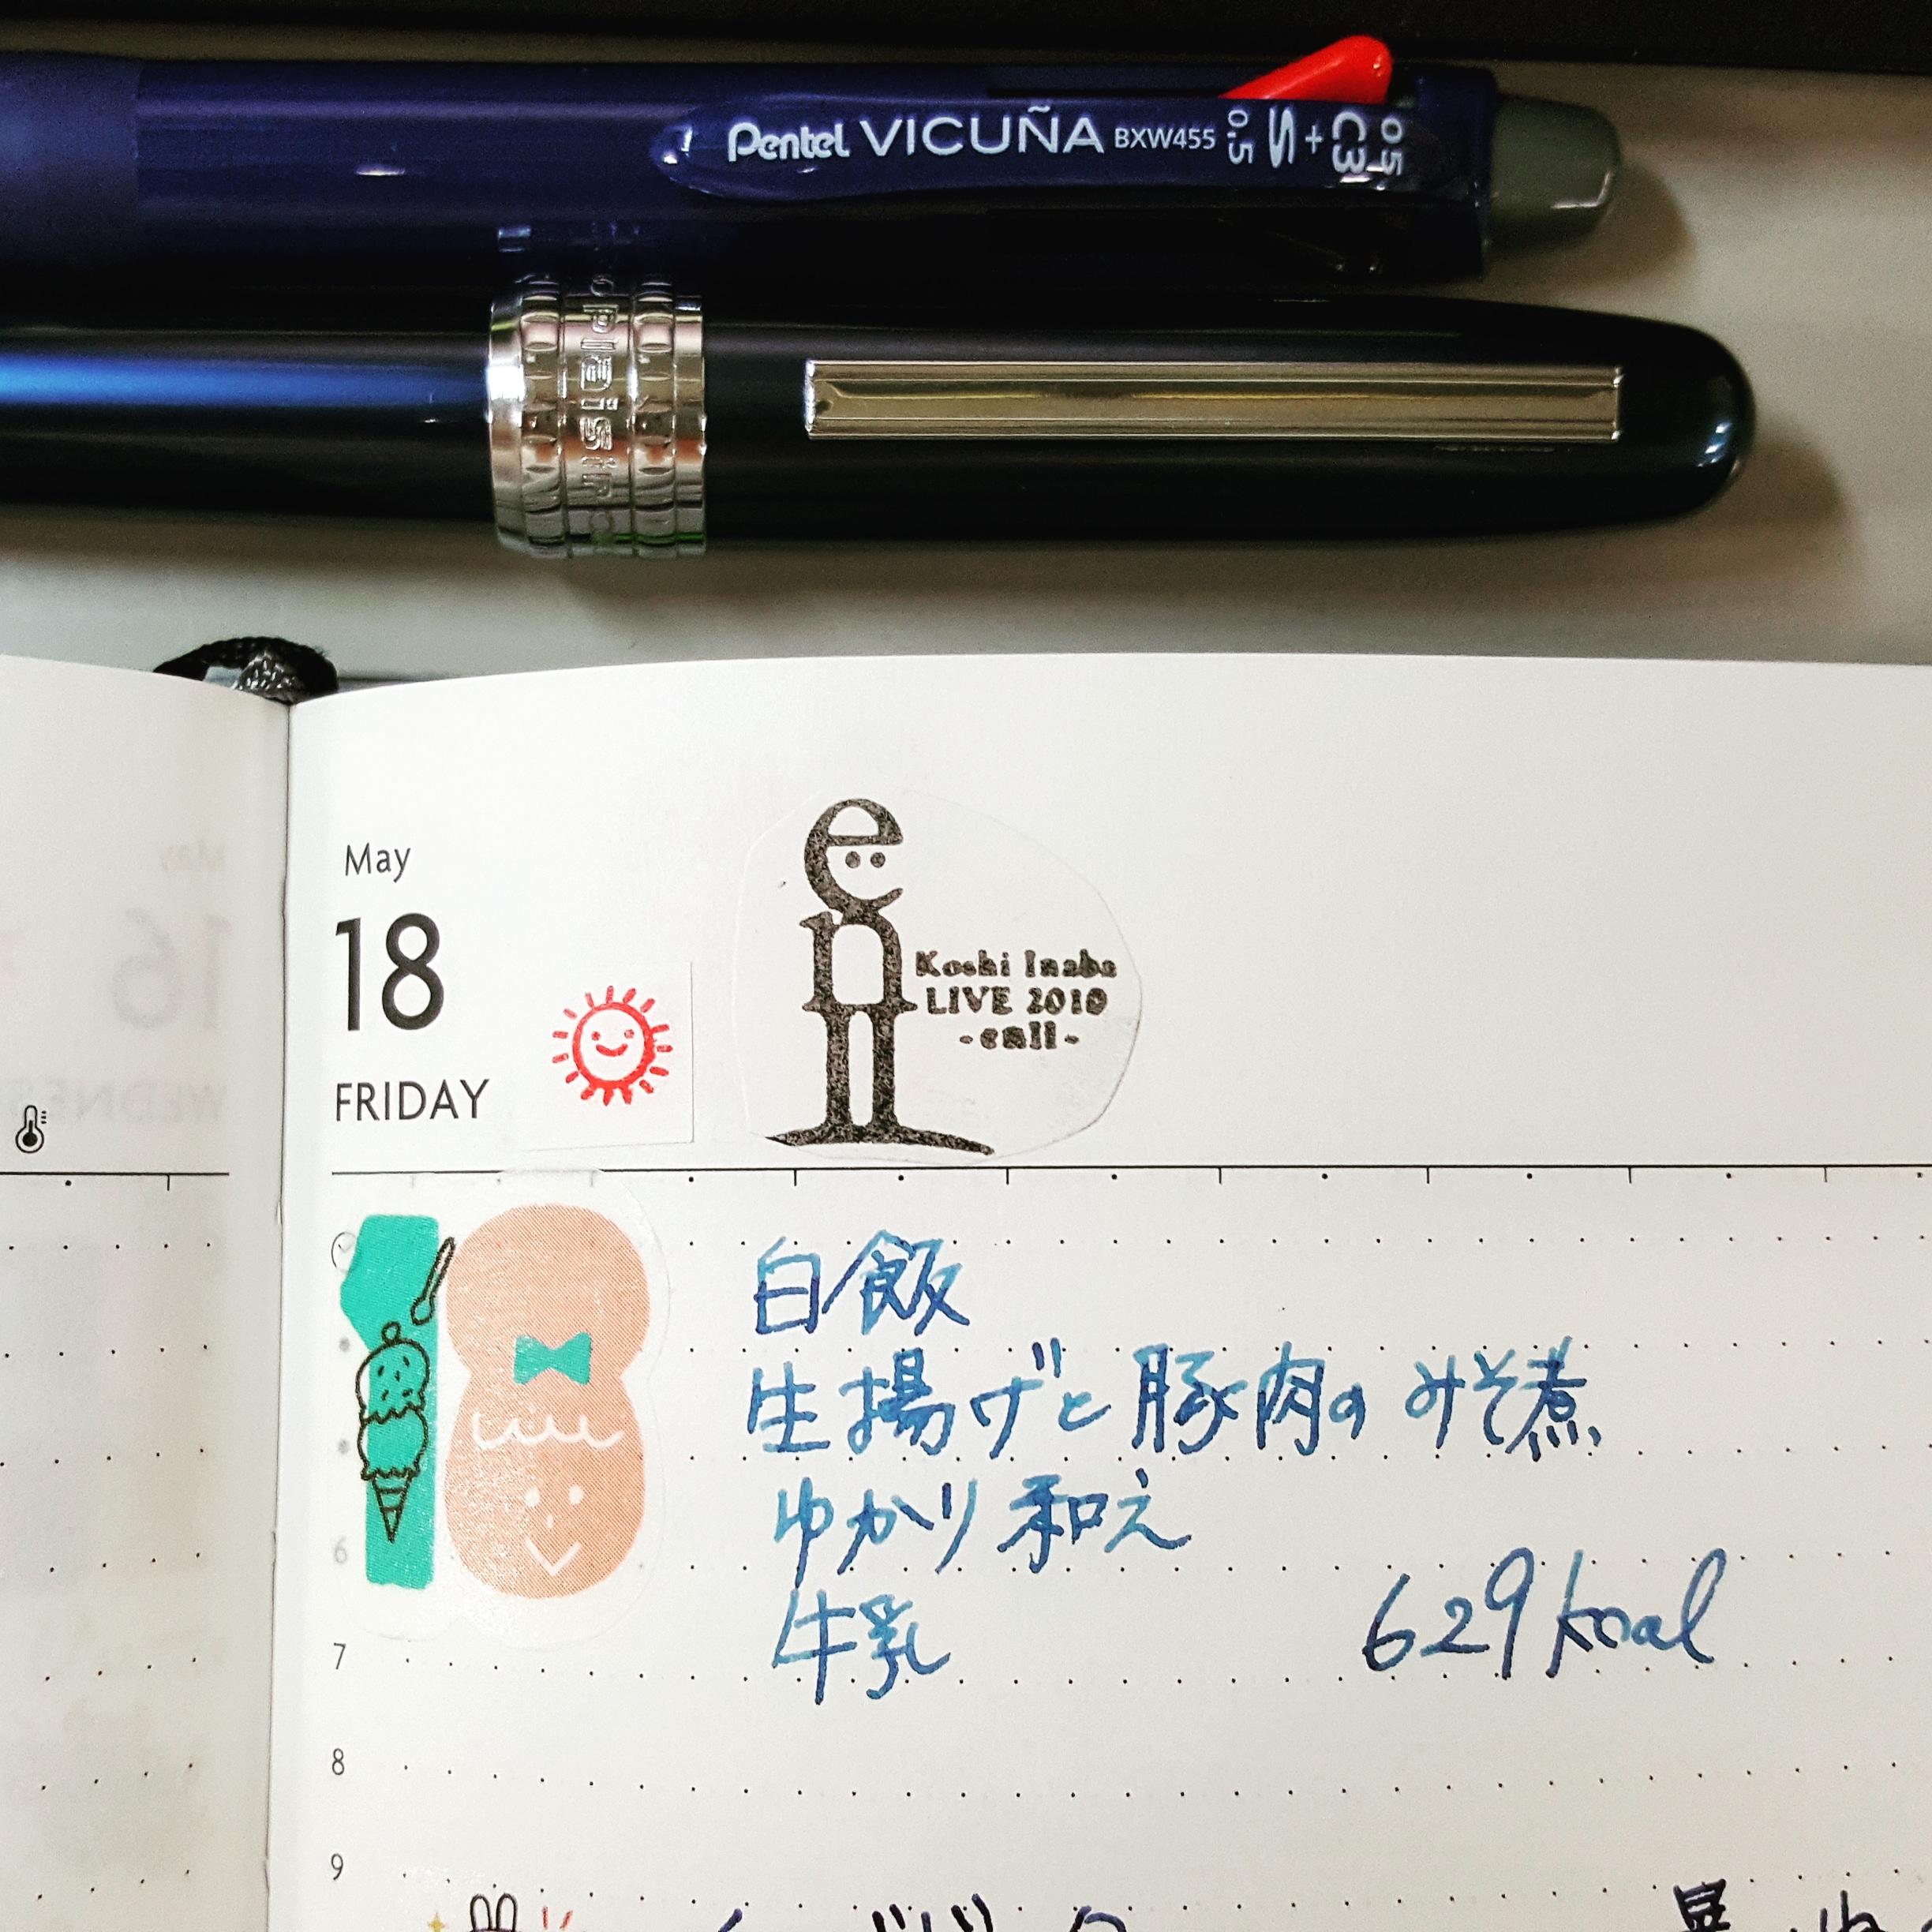 Pentel VICUÑA BXW455 0.5 S + C3 0.5
plaisir
May
18
FRIDAY
en
Koshi Inaba
LIVE 2010
-enII-
May
16
白飯
生揚げと豚肉のみそ煮
ゆかり和え
牛乳
629kcal
6
7
8
9